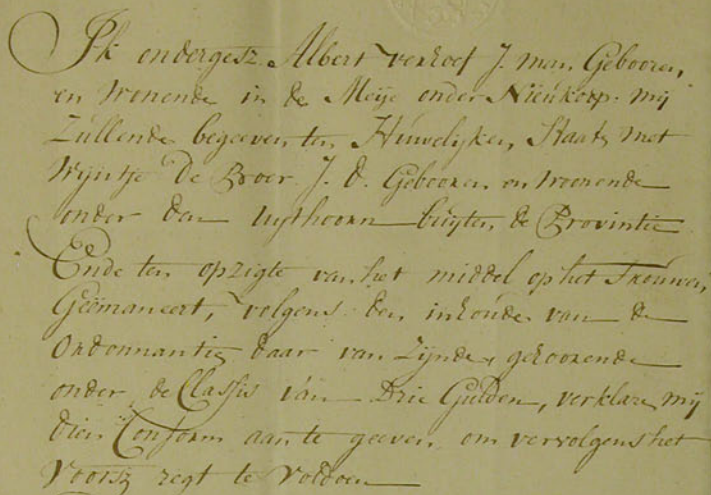 Ik ondergesz. Albert verhoef J. man. Gebooren,
en Wonende in de Meije onder Nieukoop. mij
Zullende begeeven ten Huwelijken Staat, met
Wijntje De Broer. J. d. Gebooren en Woonende
onder den uythoorn buyten de Provintie
Ende ten opzigte van het middel op het Trouwen
Geëmaneert, volgens den inhoude van de
Ordonnantie daar van zijnde, gehoorende
onder de Classis van Drie Gulden, verklare mij
dien Conform aan te geeven, om vervolgens het
Voorsz regt te voldoen